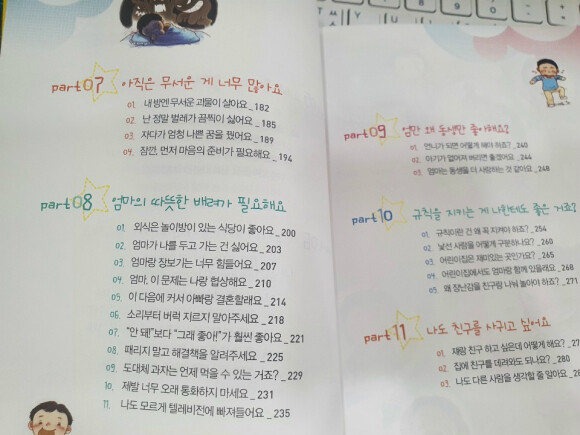 part 07 아직은 무서운 게 너무 많아요
01. 내 방엔 무서운 괴물이 살아요 _ 182
02. 난 정말 벌레가 끔찍이 싫어요 _ 185
03. 자다가 엄청 나쁜 꿈을 꿨어요 _ 189
04. 잠깐, 먼저 마음의 준비가 필요해요 _ 194
part 08 엄마의 따뜻한 배려가 필요해요
01. 외식은 놀이방이 있는 식당이 좋아요 _ 200
02. 엄마가 나를 두고 가는 건 싫어요 _ 203
03. 엄마랑 장보기는 너무 힘들어요 _ 207
04. 엄마, 이 문제는 나랑 협상해요 _ 210
05. 이 다음에 커서 아빠랑 결혼할래요 _ 214
06. 소리부터 버럭 지르지 말아주세요 _ 218
07. "안 돼"보다 "그래 좋아!"가 훨씬 좋아요 _ 221
08. 때리지 말고 해결책을 알려주세요 _ 225
09. 도대체 과자는 언제 먹을 수 있는 거죠? _ 229
10. 제발 너무 오래 통화하지 마세요 _ 231
11. 나도 모르게 텔레비전에 빠져들어요 _ 235
part 09 엄만 왜 동생만 좋아해요?
01. 언니가 되면 어떻게 해야 하죠? _ 240
02. 아기가 없어져 버리면 좋겠어요 _ 244
03. 엄마는 동생을 더 사랑하는 것 같아요 _ 248
part 10 규칙을 지키는 게 나한테도 좋은 거죠?
01. 규칙이란 건 왜 꼭 지켜야 하죠? _ 254
02. 낯선 사람을 어떻게 구분하나요? _ 260
03. 어린이집은 재미있는 곳인가요? _ 265
04. 어린이집에서도 엄마랑 함께 있을래요 _ 268
05. 왜 장난감을 친구랑 나눠 놀아야 하죠? _ 271
part 11 나도 친구를 사귀고 싶어요
01. 쟤랑 친구 하고 싶은데 어떻게 해요? _
02. 집에 친구를 데려와도 되나요? _ 280
03. 나도 다른 사람을 생각할 줄 알아요 _